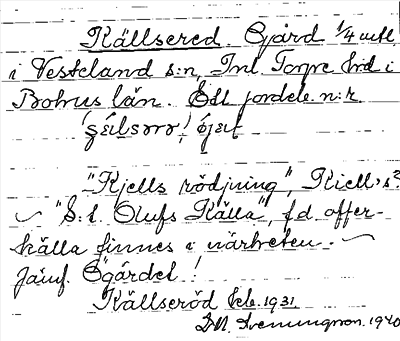 Källsered Gård 1/4 mtl
i Vesteland s:n, Inl. Torpe hrd i
Bohus län. Ell jordelr. n:r
"Kjells rödjning", Kiell, s?
"S:t. Olufs Källa", f.d. offer-
källa finnes i närheten.
Jämf. Ögärdet!
Källseröd 1931
Hemingson. 1940